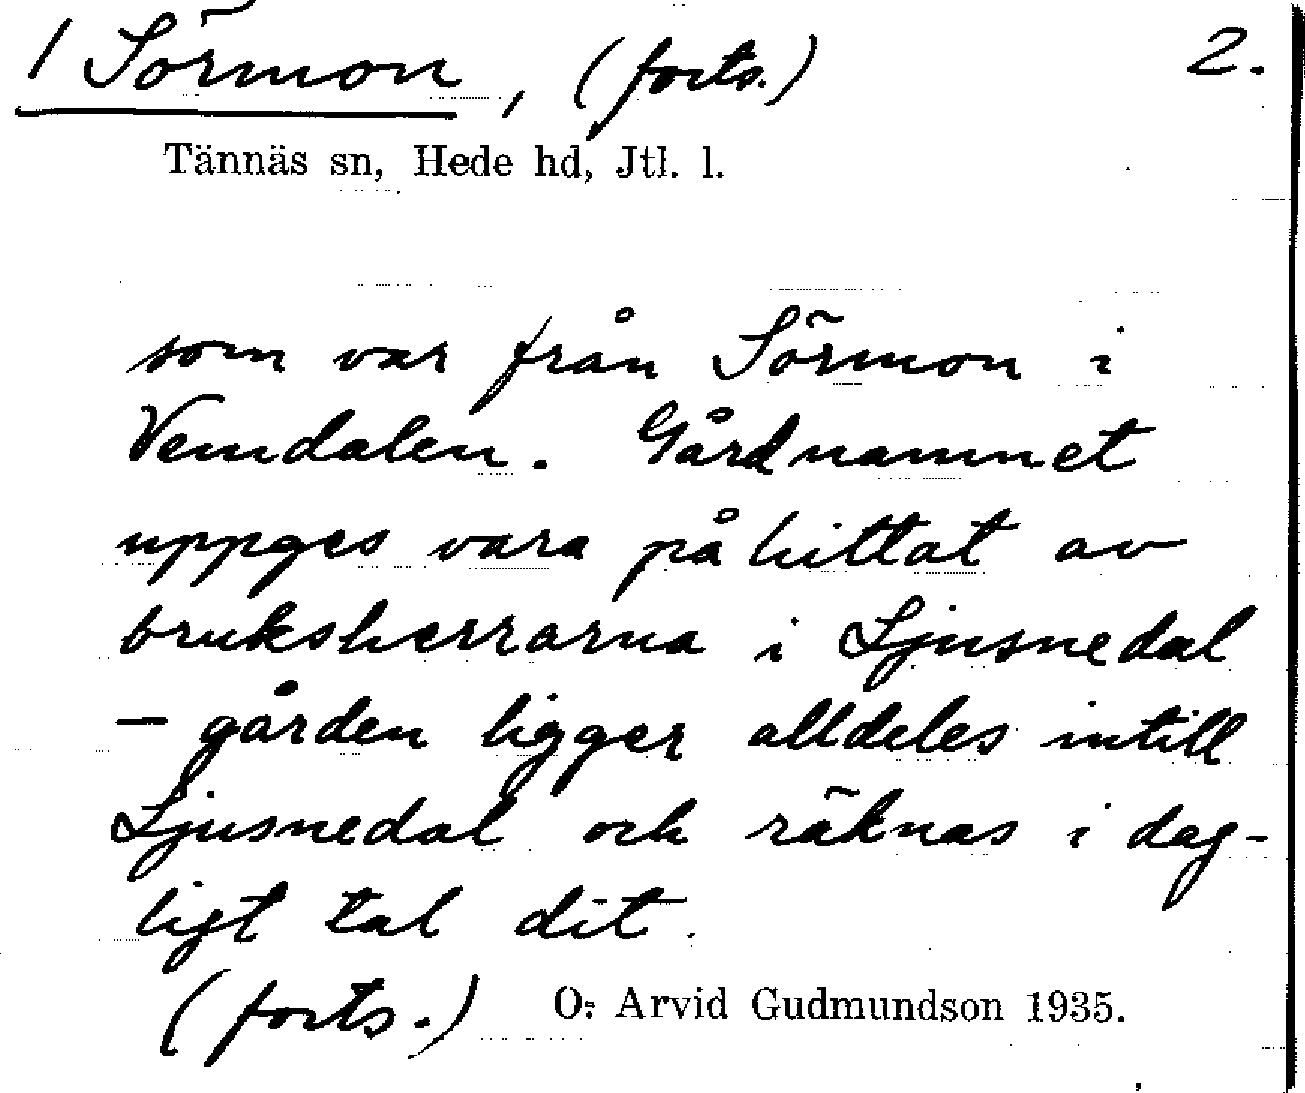 / Sörmon, (forts.) 2.
Tännäs sn, Hede hd, Jtl. l.
som var från Sörmon i
Vemdalen. Gårdnamnet
uppges vara påhittat av
bruksherrarna i Ljusnedal
– gården ligger alldeles intill
Ljusnedal och räknas i dag-
ligt tal dit.
(forts.) O: Arvid Gudmundson 1935.